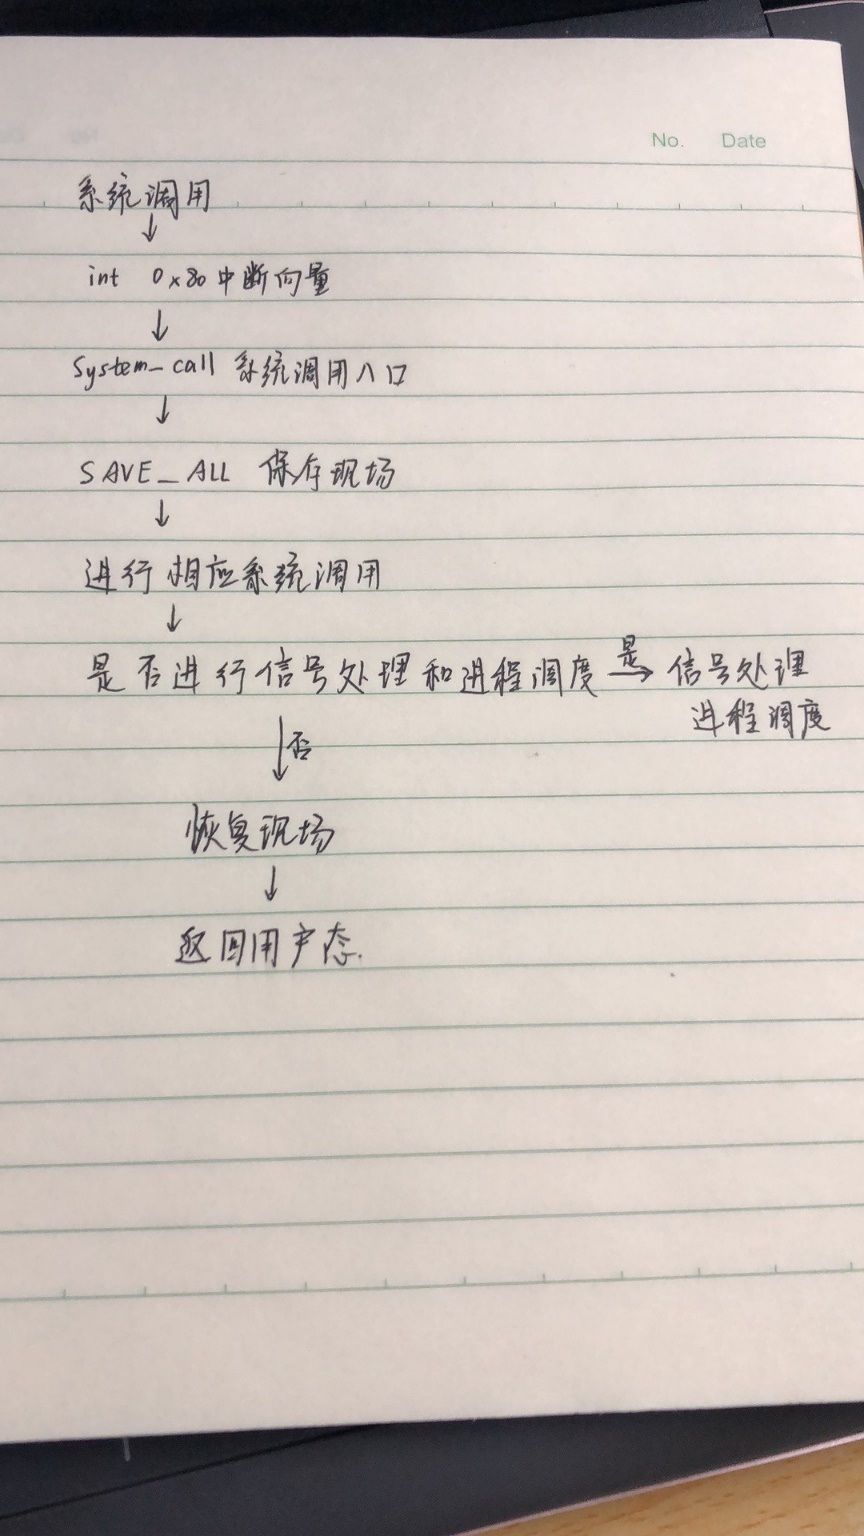 No. Date
系统调用
↓
int 0x80中断向量
↓
System_call 系统调用入口
↓
SAVE_ALL 保存现场
↓
进行相应系统调用
↓
是否进行信号处理和进程调度 是→ 信号处理
进程调度
↓否
恢复现场
↓
返回用户态.